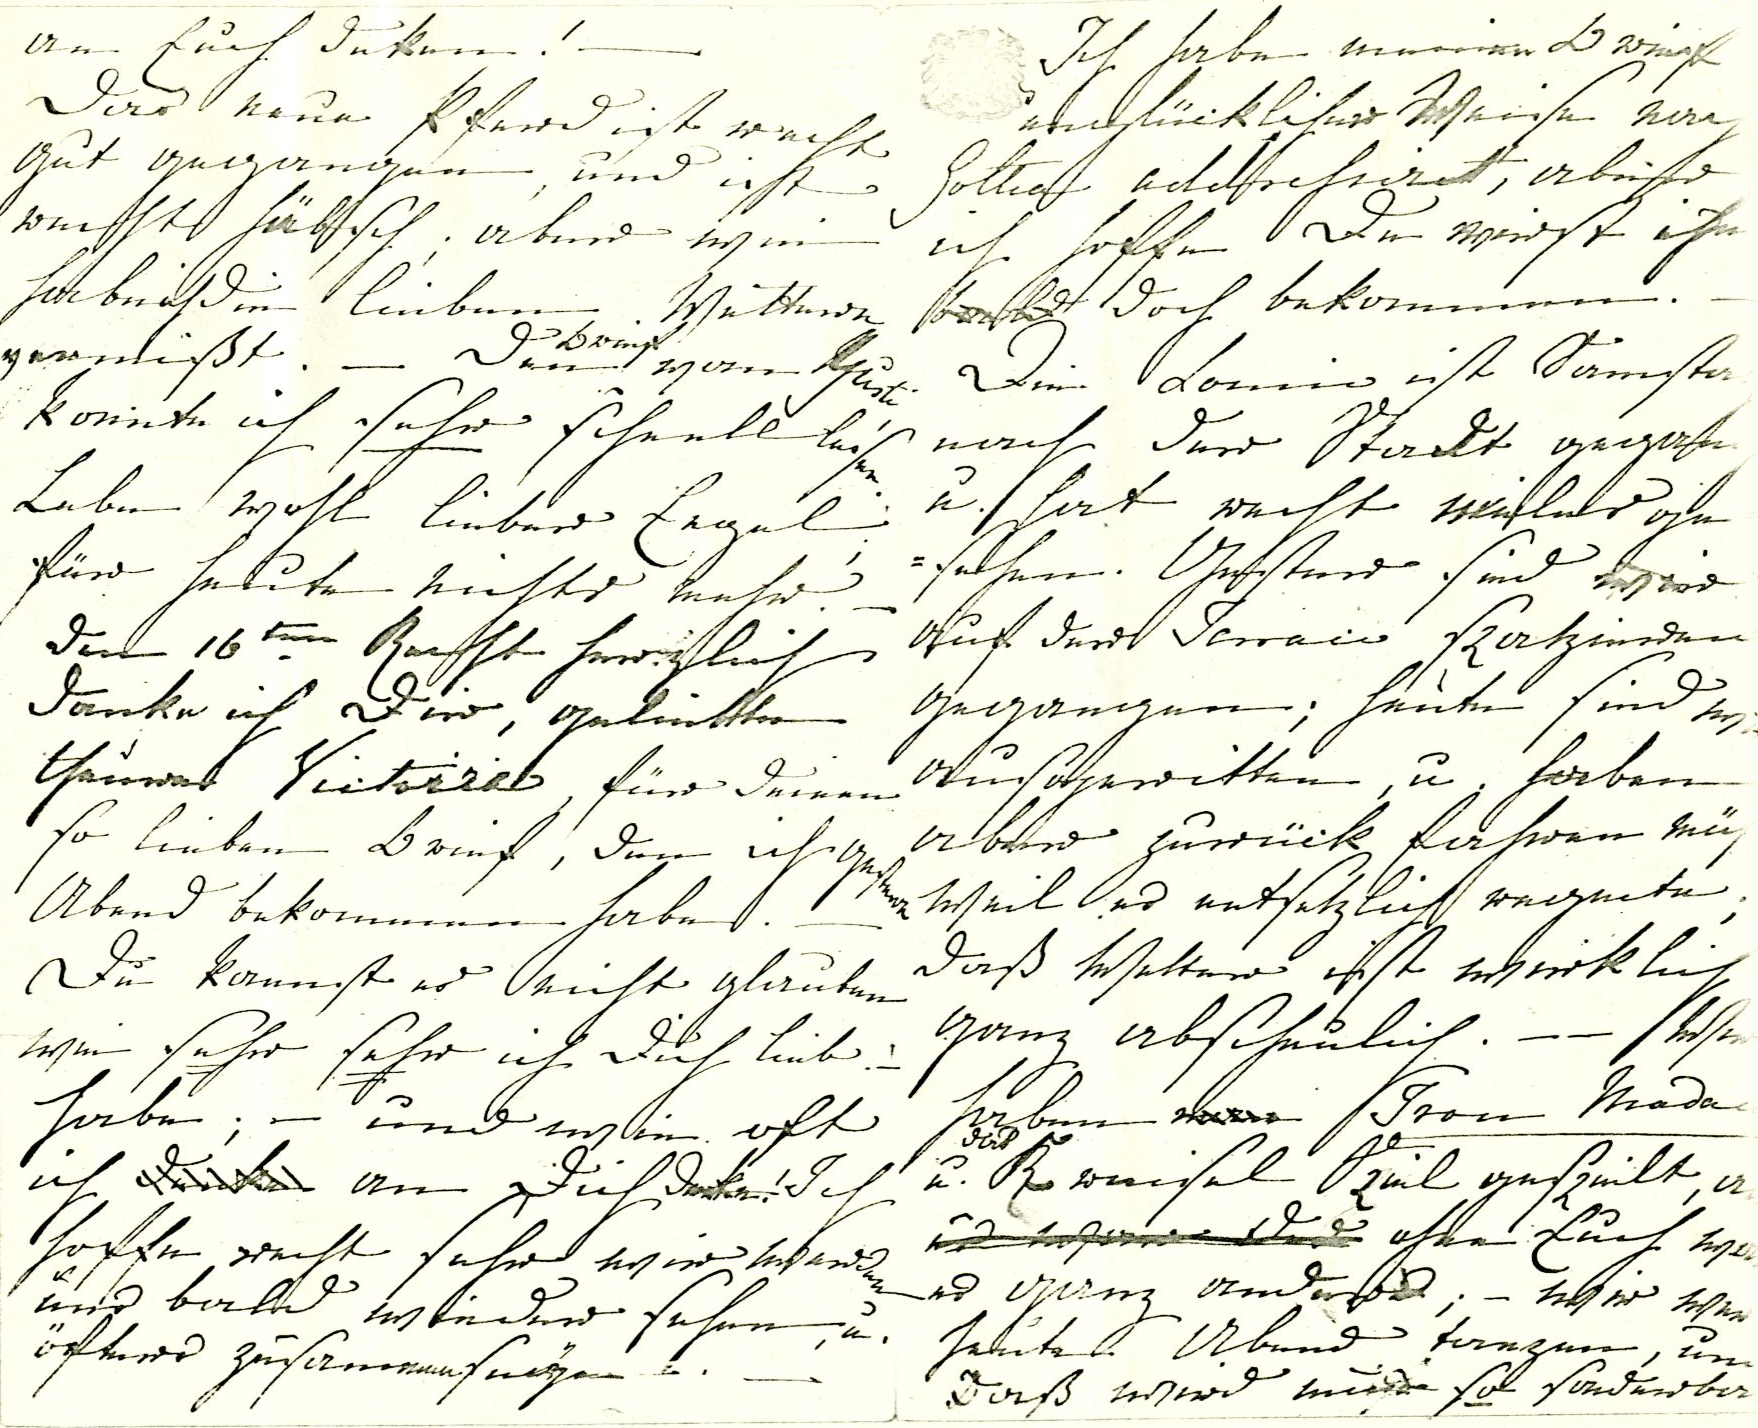 an Euch denken! —
Das neue Pferd ist recht
gut gegangen, und ist
recht hübsch; aber wie
habe ich die lieben Vettern
vermißt. — Den Brief von Gusti
konnte ich sehr schnell lesen
Lebe wohl lieber Engel;
für heute nichts mehr. —
den 16ten Recht herzlich
danke ich Dir, geliebte
theure Victoire, für deinen
so lieben Brief, den ich gestern
Abend bekommen habe. —
Du kannst es nicht glauben
wie sehr sehr ich Dich lieb
habe; — und wie oft
ich denke an Dich denke! Ich
hoffe recht sehr wir werden
uns bald wieder sehen, u.
öfters zusammen —
Ich habe meinen Brief
unglücklicher Weise nach
Gotha addressiret, aber
ich hoffe Du wirst ihn
bald doch bekommen. —
Die Louis ist Samsta
nach der Stadt gegan
u. hat recht vieles ge
=sehen. Gestern sind wir
auf der Terrace spatzieren
gegangen; heute sind wi
ausgeritten, u. haben
aber zurück fahren müs
weil es entsetzlich regnete;
daß Wetter ist wirklich
ganz abscheulich. — — Wir
haben Trou Mada
u. das Kreisel Spiel gespielt, a
es war das ohne Euch wa
es ganz anders; — wir wer
heute Abend tanzen, un
daß wird mir so sonderba